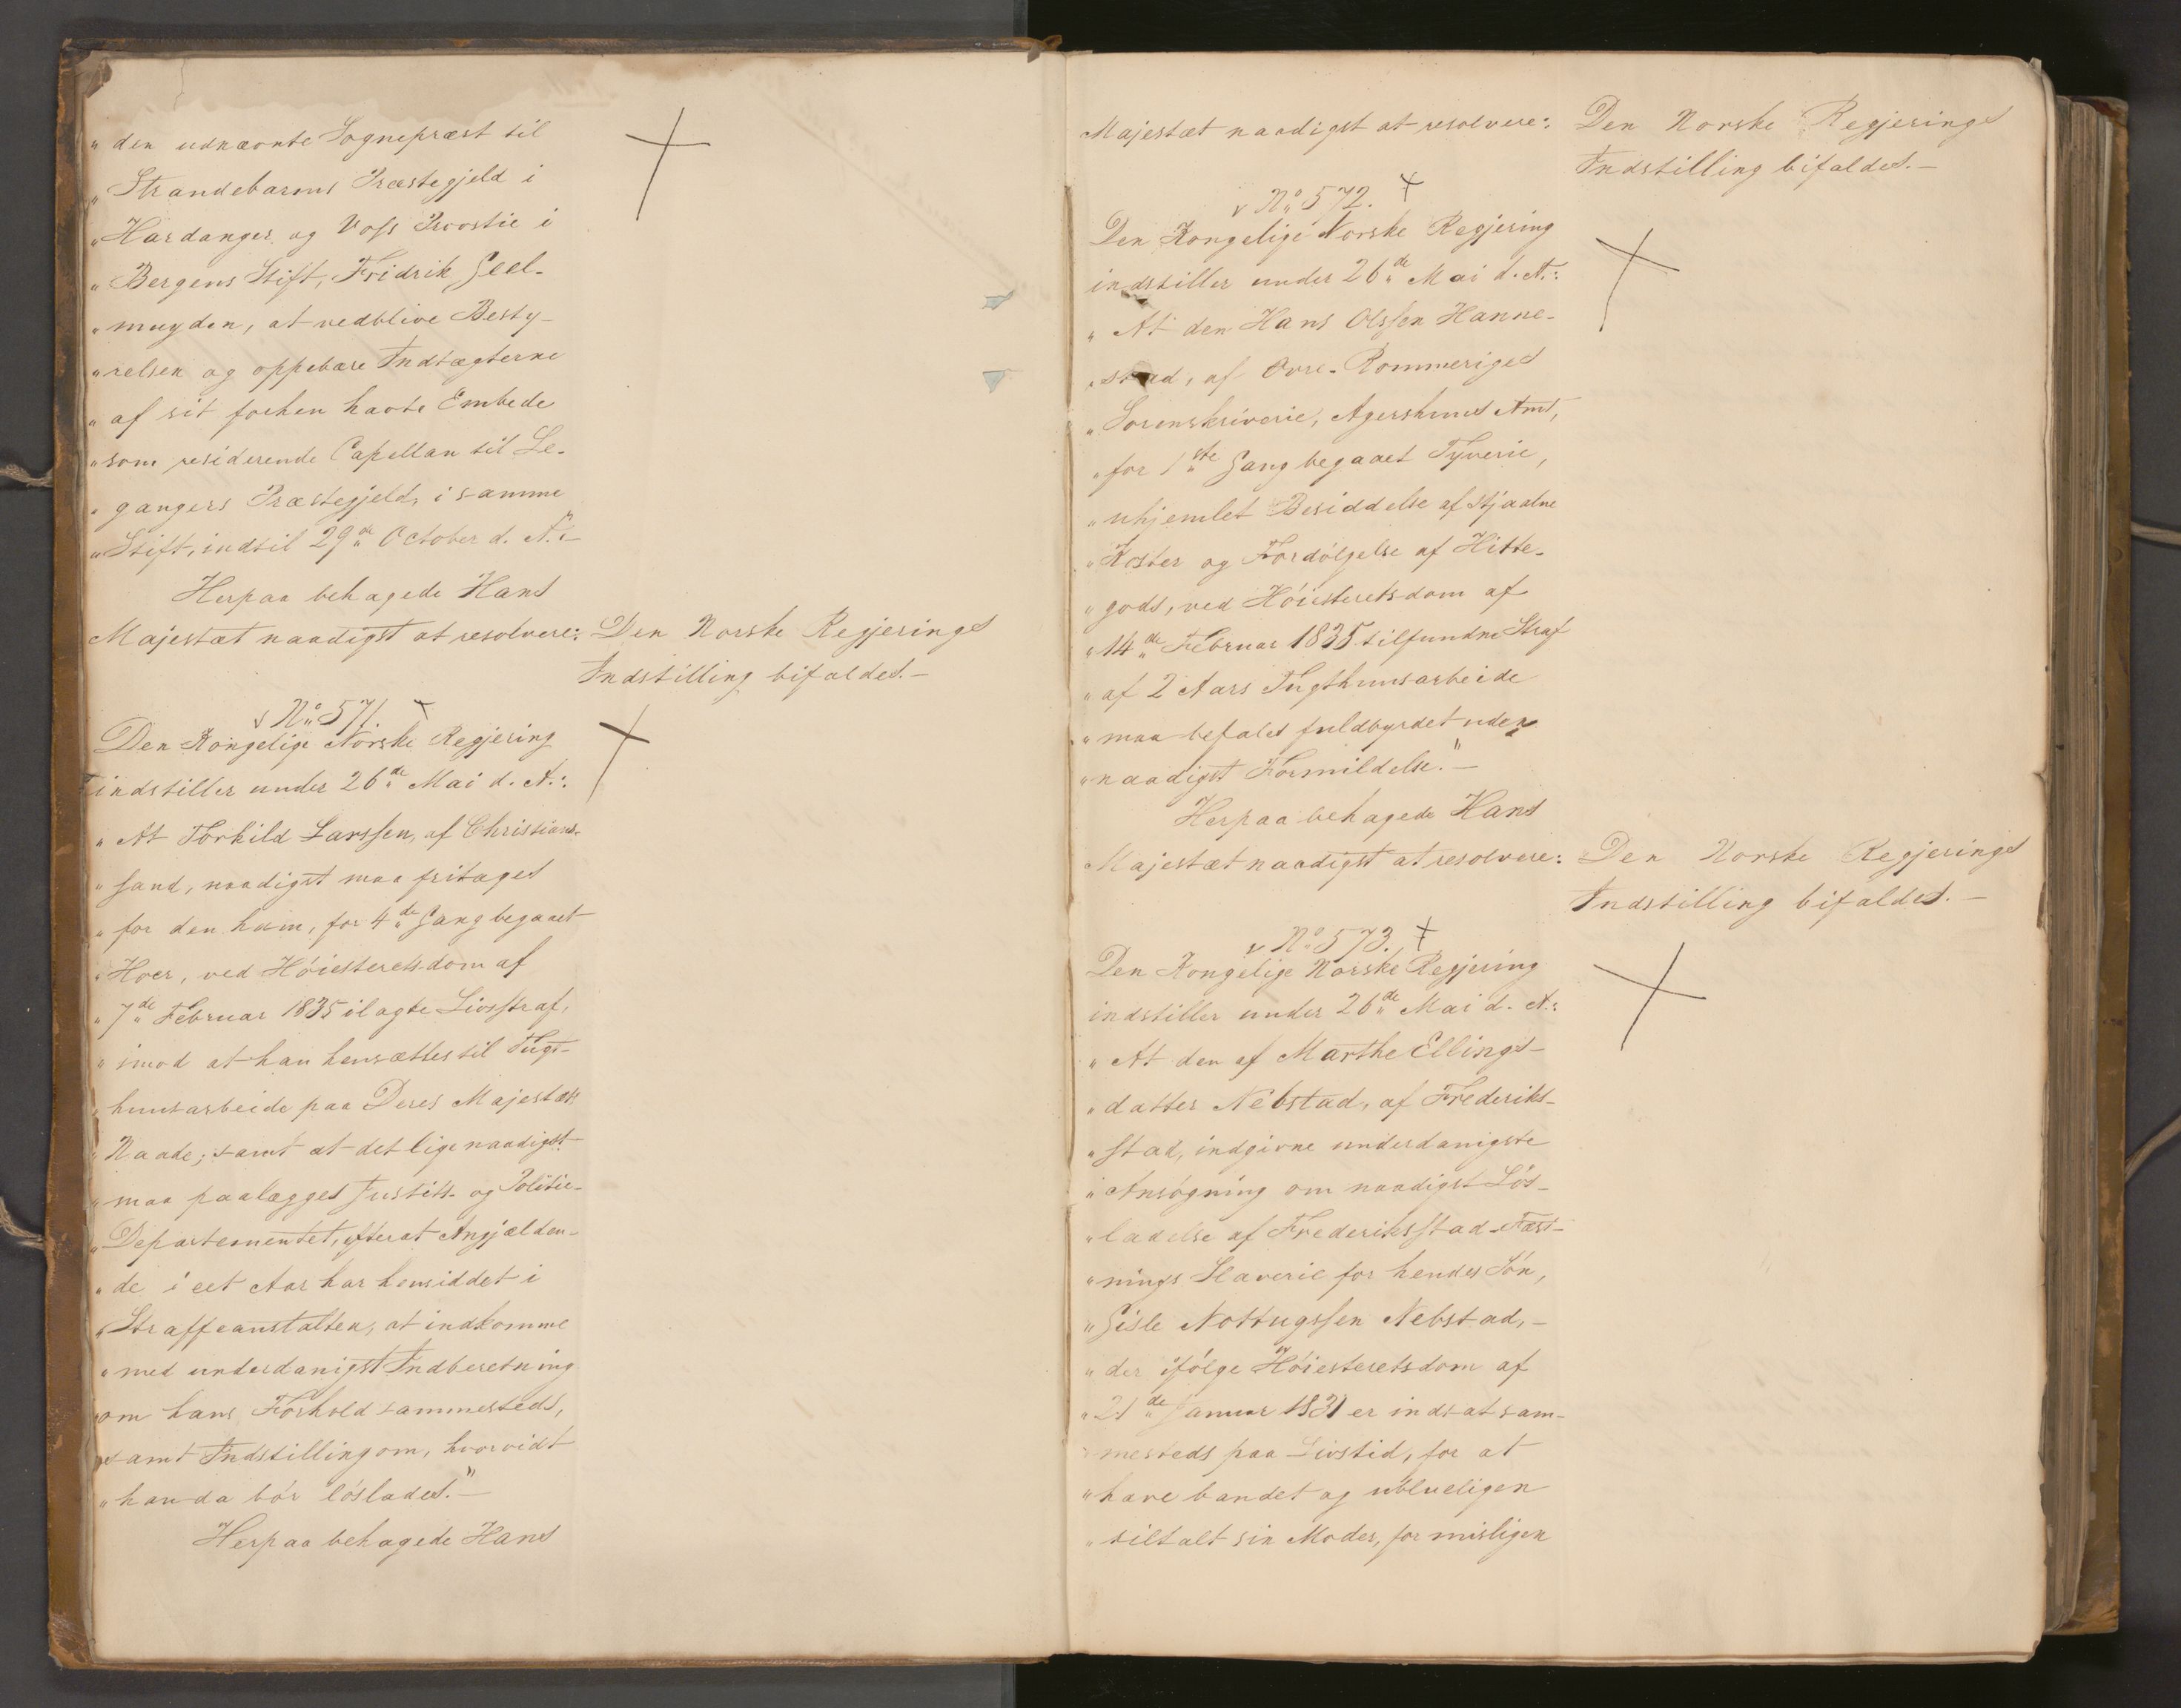 „ den udnævnte Sognepræst til
„ Strandebarms Præstegjeld i
„ Hardanger og Voss Provstie i
„ Bergens Stift, Fridrik Geel-
„ muyden, at vedblive Besty-
„ relsen og oppebære Indtægterne
„ af sit forhen havte Embede
„ som residerende Capellan til Le-
„ gangers Præstegjeld, i samme
„ Stift, indtil 29de October d. A.“—
Herpaa behagede Hans
Majestæt naadigst at resolvere:
Den Norske Regjerings
Indstilling bifaldes.—
No 571.
Den Kongelige Norske Regjering
indstiller under 26de Mai d. A.:
„ At Torkild Larssen, af Christians-
„ sand, naadigst maa fritages
„ for den ham, for 4de Gang begaaet
„ Hoer, ved Høiesteretsdom af
„ 7de Februar 1835 ilagte Livsstraf,
„ imod at han hensættes til Tugt-
„ huusarbeide paa Deres Majestæts
„ Naade; samt at det lige naadigst
„ maa paalægges Justits- og Politie-
„ Departementet, efterat Angjælden-
„ de i eet Aar har hensiddet i
„ Straffeanstalten, at indkomme
„ med underdanigst Indberetning
„ om hans Forhold sammesteds,
„ samt Indstilling om, hvorvidt
„ han da bør løslades.“—
Herpaa behagede Hans
Majestæt naadigst at resolvere:
Den Norske Regjerings
Indstilling bifaldes.—
No 572.
Den Kongelige Norske Regjering
indstiller under 26de Mai d. A.:
„ At den Hans Olssen Hanne-
„ stad, af Øvre-Rommeriges
„ Sorenskriverie, Agershuus Amt,
„ for 1ste Gang begaaet Tyverie,
„ uhjemlet Besiddelse af stjaalne
„ Koster og Fordølgelse af Hitte-
„ gods, ved Høiesteretsdom af
„ 14de Februar 1835 tilfundne Straf
„ af 2 Aars Tugthuusarbeide
„ maa befales fuldbyrdet uden
„ naadigst Formildelse.“—
Herpaa behagede Hans
Majestæt naadigst at resolvere:
Den Norske Regjerings
Indstilling bifaldes.—
No 573.
Den Kongelige Norske Regjering
indstiller under 26de Mai d. A.:
„ At den af Marthe Ellings-
„ datter Nebstad, af Frederiks-
„ stad, indgivne underdanigste
„ Ansøgning om naadigst Løs-
„ ladelse af Frederiksstad-Fæst-
„ nings Slaverie for hendes Søn,
„ Gisle Nottugssen Nebstad,—
„ der ifølge Høiesteretsdom af
„ 21de Januar 1831 er indsat sam-
„ mesteds paa Livstid, for at
„ have bandet og ublueligen
„ tiltalt sin Moder, for misligen